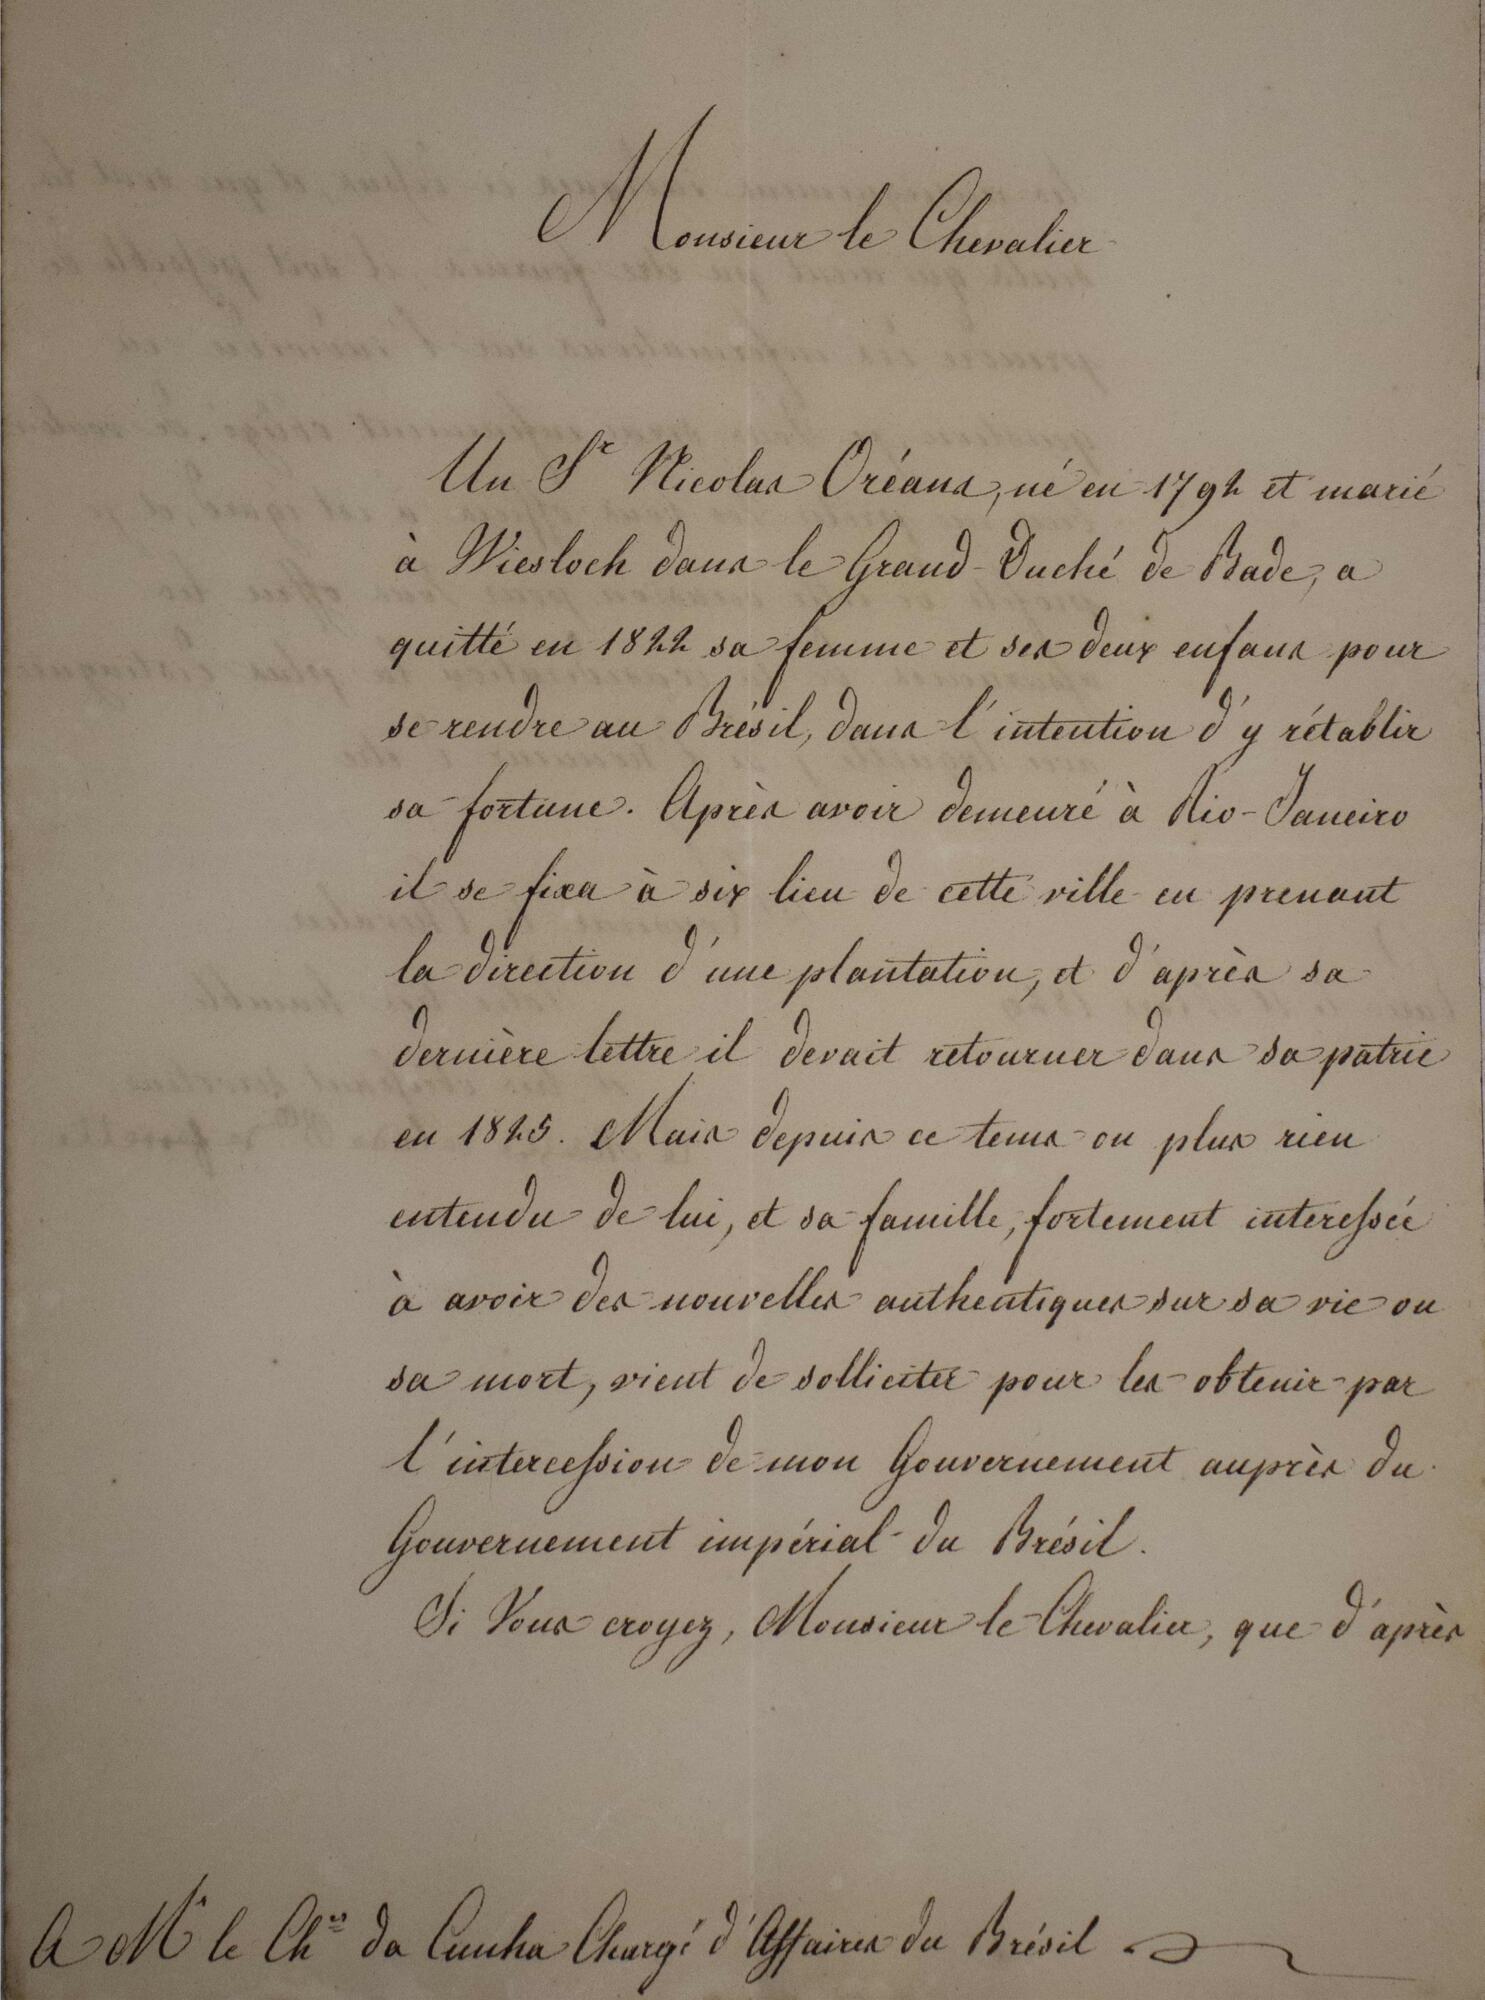 Monsieur le Chevalier
Un Sr Nicolas Oréans, né en 1792 et marié
à Wiesloch dans le Grand-Duché de Bade, a
quitté en 1822 sa femme et ses deux enfans pour
se rendre au Brésil, dans l'intention d'y rétablir
sa fortune. Après avoir demeuré à Rio-Janeiro
il se fixa à six lieu de cette ville en prenant
la direction d'une plantation, et d'après sa
dernière lettre il devait retourner dans sa patrie
en 1825. Mais depuis ce tems on plus rien
entendu de lui, et sa famille, fortement interessée
à avoir des nouvelles authentiques sur sa vie ou
sa mort, vient de solliciter pour les obtenir par
l'intercession de mon Gouvernement auprès du
Gouvernement impérial du Brésil.
Si Vous croyez, Monsieur le Chevalier, que d'après
A Mr le Chev da Cunha Chargé d'Affaires du Brésil